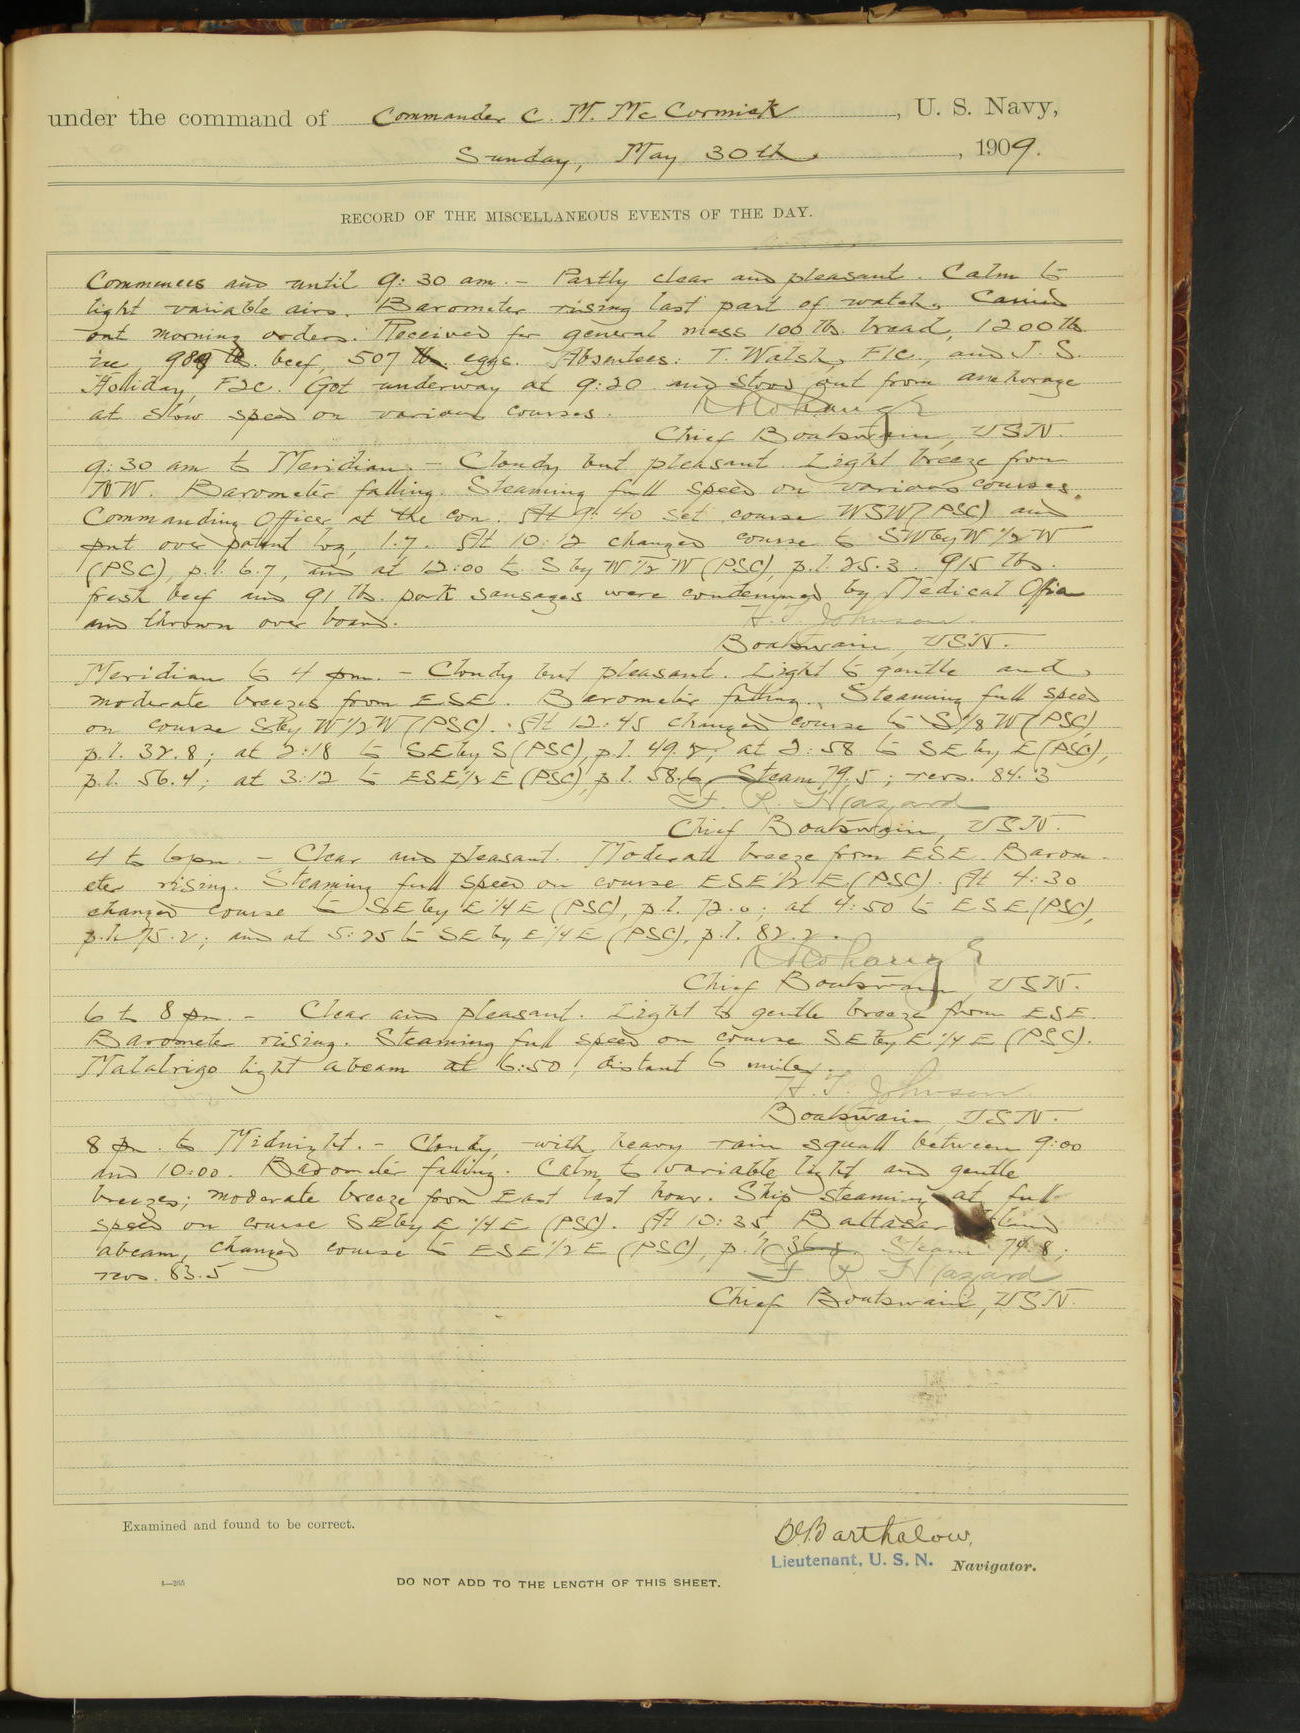 under the command of Commander C. M. McCormick, U. S. Navy,
Sunday, May 30th, 1909.
RECORD OF THE MISCELLANEOUS EVENTS OF THE DAY.
Commences and until 9:30 am. - Partly clear and pleasant. Calm to
light variable airs. Barometer rising last part of watch. Carried
out morning orders. Received for general mess 100 lbs. bread, 1200 lbs
ice 989 lbs. beef, 507 lbs. eggs. Absentees: T. Walsh, F1c., and J. S.
Holiday, F2c. Got underway at 9:20 and stood out from anchorage
at slow speed on various courses.
Chief Boatswain, USN.
9:30 am to Meridian. - Cloudy but pleasant. Light breeze from
NW. Barometer falling. Steaming full speed on various courses.
Commanding Officer at the con. At 9:40 set course WSW (PSC) and
put over patent log, 1.7. At 10:12 changed course to SWbyW 1/2 W
(PSC) p.l. 6.7, and at 12:00 to S by W 1/2 W (PSC) p.l. 25.3. 915 lbs.
fresh beef and 91 lbs. pork sausages were condemned by Medical Officer
and thrown over board.
H. T. Johnson.
Boatswain, USN.
Meridian to 4 pm. - Cloudy but pleasant. Light to gentle and
moderate breezes from ESE. Barometer falling. Steaming full speed
on course SbyW 1/2 W (PSC). At 12:45 changed course to S 1/8 W (PSC),
p.l. 32.8; at 2:18 to SEbyS (PSC), p.l. 49.8; at 2:58 to SE by E (PSC),
p.l. 56.4; at 3:12 to ESE 1/2 E (PSC), p.l. 58.6. Steam 79.5; revs. 84.3
F. R. Hazard
Chief Boatswain, USN.
4 to 6 pm. - Clear and pleasant. Moderate breeze from ESE. Barom-
eter rising. Steaming full speed on course ESE 1/2 E (PSC). At 4:30
changed course to SE by E 1/4 E (PSC), p.l. 72.0; at 4:50 to ESE (PSC),
p.l. 75.2; and at 5:25 to SE by E 1/4 E (PSC), p.l. 82.2.
Chief Boatswain, USN.
6 to 8 pm. - Clear and pleasant. Light to gentle breeze from ESE.
Barometer rising. Steaming full speed on course SE by E 1/4 E (PSC).
Malabrigo light abeam at 6:50, distant 6 miles.
H. T. Johnson
Boatswain, USN.
8 pm. to Midnight. - Cloudy, with heavy rain squall between 9:00
and 10:00. Barometer falling. Calm to variable light and gentle
breezes; moderate breeze from East last hour. Ship steaming at full
speed on course SE by E 1/4 E (PSC). At 10:35, Baltasar Island
abeam, changed course to ESE 1/2 E (PSC), p.l. Steam 79.8;
revs. 83.5
F. R. Hazard
Chief Boatswain, USN.
Examined and found to be correct.
Barthalow,
Lieutenant, U. S. N. Navigator.
DO NOT ADD TO THE LENGTH OF THIS SHEET.